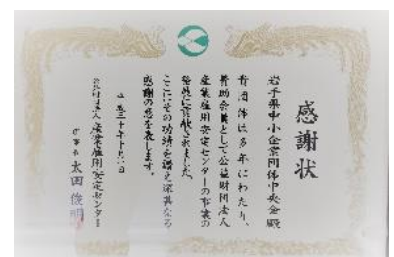 感謝状
岩手県中小企業団体中央会殿
貴団体は多年にわたり、
賛助会員として公益財団法人
産業雇用安定センターの事業の
発展に貢献されました
ここにその功績を讃え深甚なる
感謝の意を表します。
平成三十年十月
公益財団法人 産業雇用安定センター
理事長 太田俊明